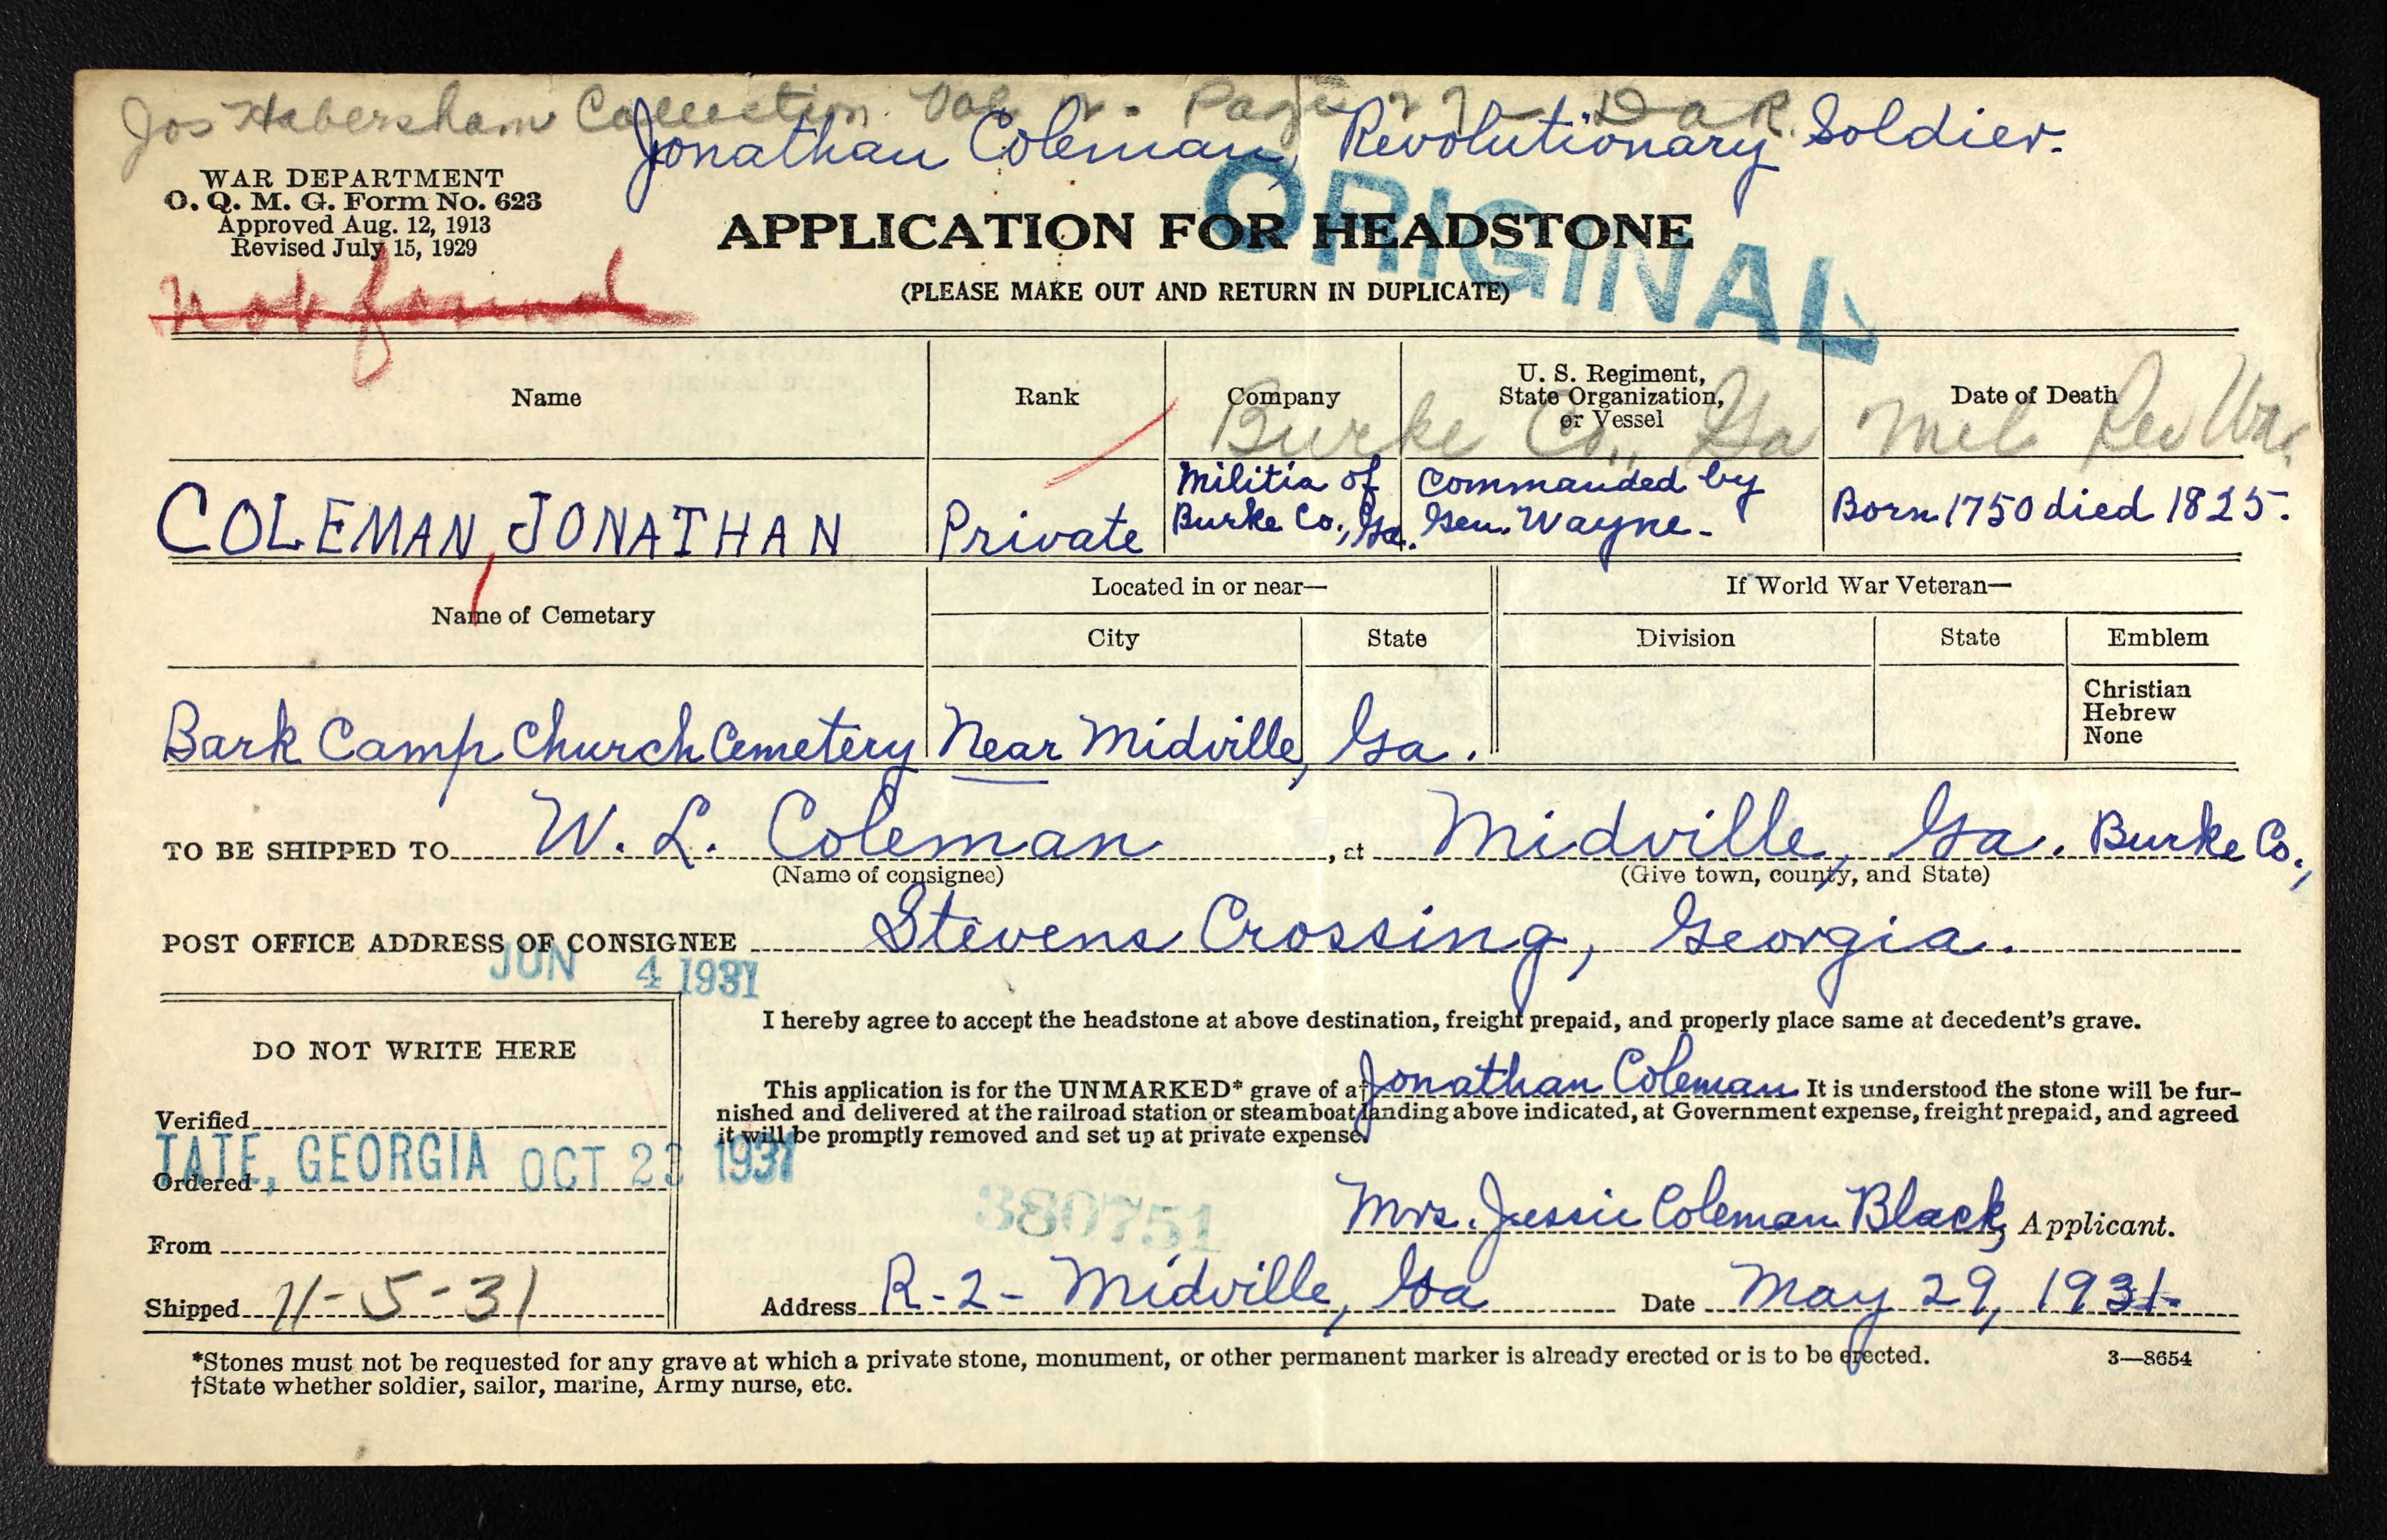 Jos Habersham Collection Vol Page D a R.
Jonathan Coleman, Revolutionary Soldier.
WAR DEPARTMENT
O. Q. M. G. Form No. 623
Approved Aug. 12, 1913
Revised July 15, 1929
ORIGINAL
APPLICATION FOR HEADSTONE
(PLEASE MAKE OUT AND RETURN IN DUPLICATE)
Not found
Name
Rank
Company
U. S. Regiment,
State Organization,
or Vessel
Date of Death
Burke Co., Ga Mil Rev War
COLEMAN, JONATHAN
Private
Militia of
Burke Co., Ga.
Commanded by
Gen. Wayne.
Born 1750 died 1825.
Name of Cemetary
Located in or near—
City
State
If World War Veteran—
Division
State
Emblem
Christian
Hebrew
None
Bark Camp Church Cemetery
Near Midville,
Ga.
TO BE SHIPPED TO W. L. Coleman, at Midville, Ga. Burke Co.,
(Name of consignee) (Give town, county, and State)
POST OFFICE ADDRESS OF CONSIGNEE Stevens Crossing, Georgia.
JUN 4 1931
I hereby agree to accept the headstone at above destination, freight prepaid, and properly place same at decedent's grave.
This application is for the UNMARKED* grave of a† Jonathan Coleman It is understood the stone will be fur-
nished and delivered at the railroad station or steamboat landing above indicated, at Government expense, freight prepaid, and agreed
it will be promptly removed and set up at private expense.
DO NOT WRITE HERE
Verified
TATE, GEORGIA OCT 23 1931
Ordered
From
Shipped 11-5-31
380751
Mrs. Jessie Coleman Black, Applicant.
Address R-2- Midville, Ga Date May 29, 1931.
*Stones must not be requested for any grave at which a private stone, monument, or other permanent marker is already erected or is to be erected.
3—8654
†State whether soldier, sailor, marine, Army nurse, etc.